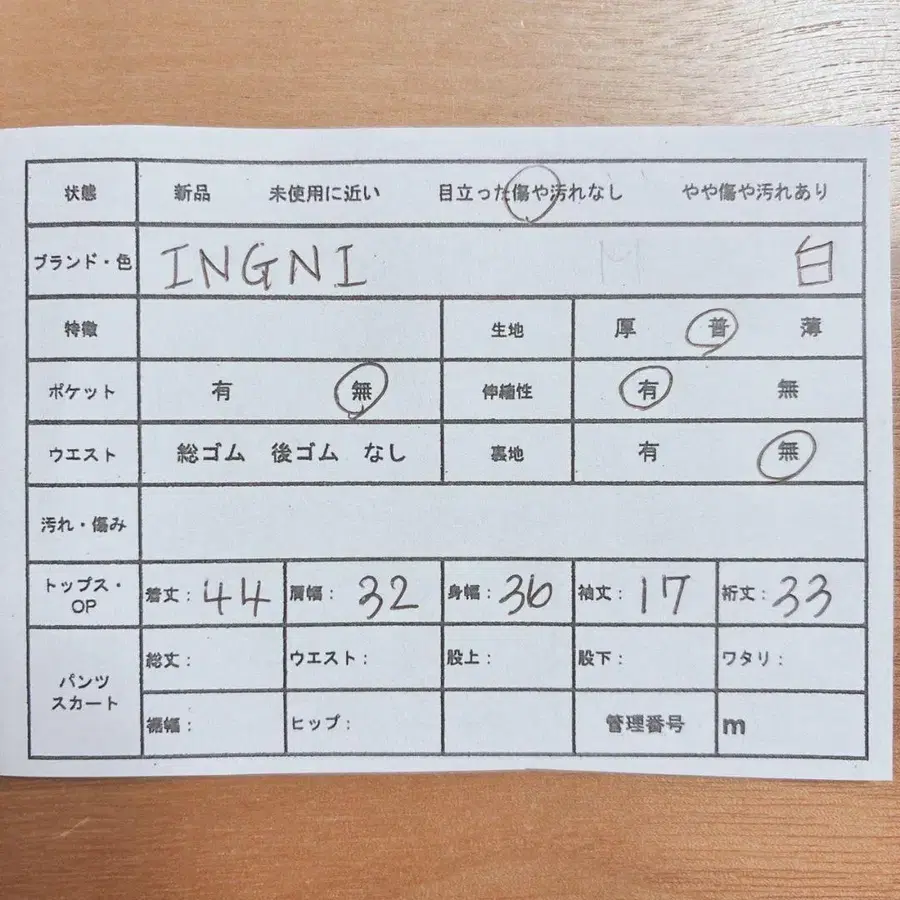 状態 新品 未使用に近い 目立った傷や汚れなし やや傷や汚れあり
ブランド・色 INGNI M 白
特徴 生地 厚 普 薄
ポケット 有 無 伸縮性 有 無
ウエスト 総ゴム 後ゴム なし 裏地 有 無
汚れ・傷み
トップス・OP 着丈: 44 肩幅: 32 身幅: 36 袖丈: 17 裄丈: 33
パンツ スカート 総丈: ウエスト: 股上: 股下: ワタリ:
裾幅: ヒップ: 管理番号 m